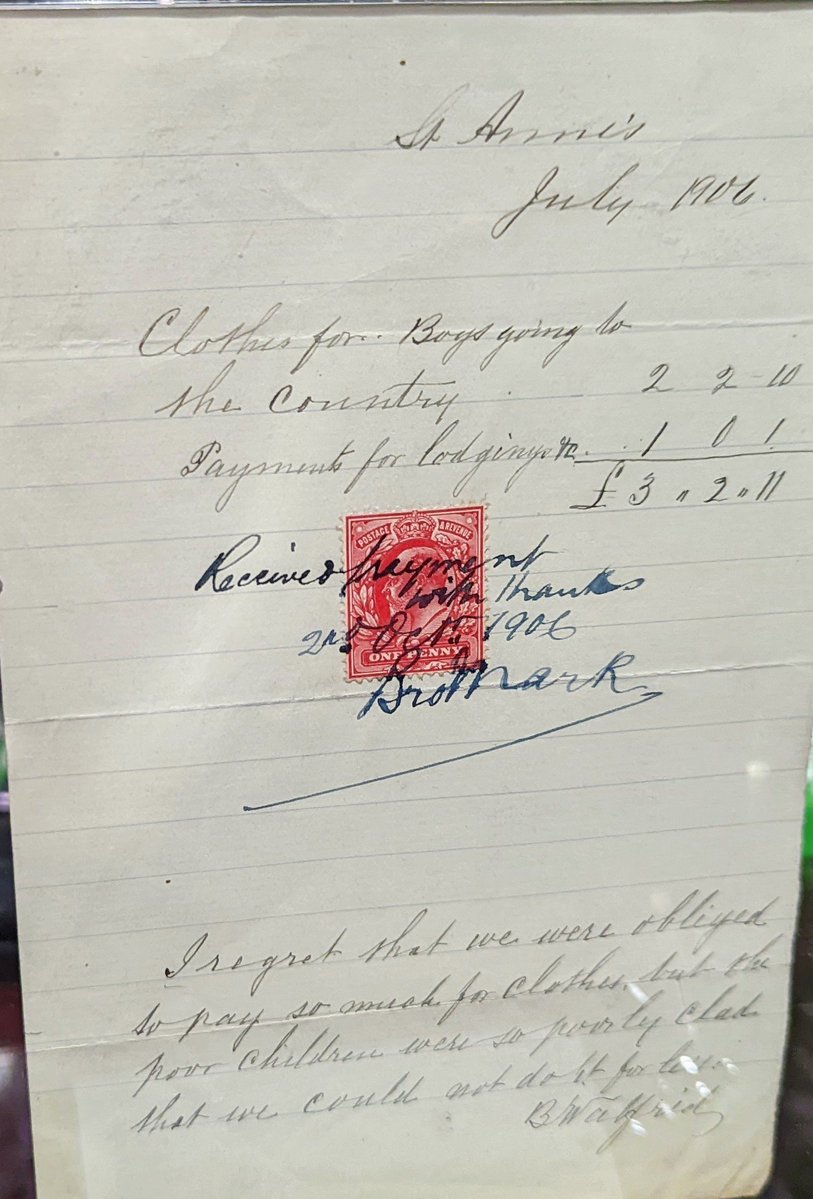 St Anne's
July 1906.
Clothes for Boys going to
the country 2 2 10
Payments for lodgings &c. 1 0 1
£3 " 2 " 11
POSTAGE & REVENUE
Received payment
with thanks
2nd Oct. 1906
ONE PENNY
Bro Mark
I regret that we were obliged
to pay so much for clothes, but the
poor children were so poorly clad
that we could not do it for less.
B Walfrid